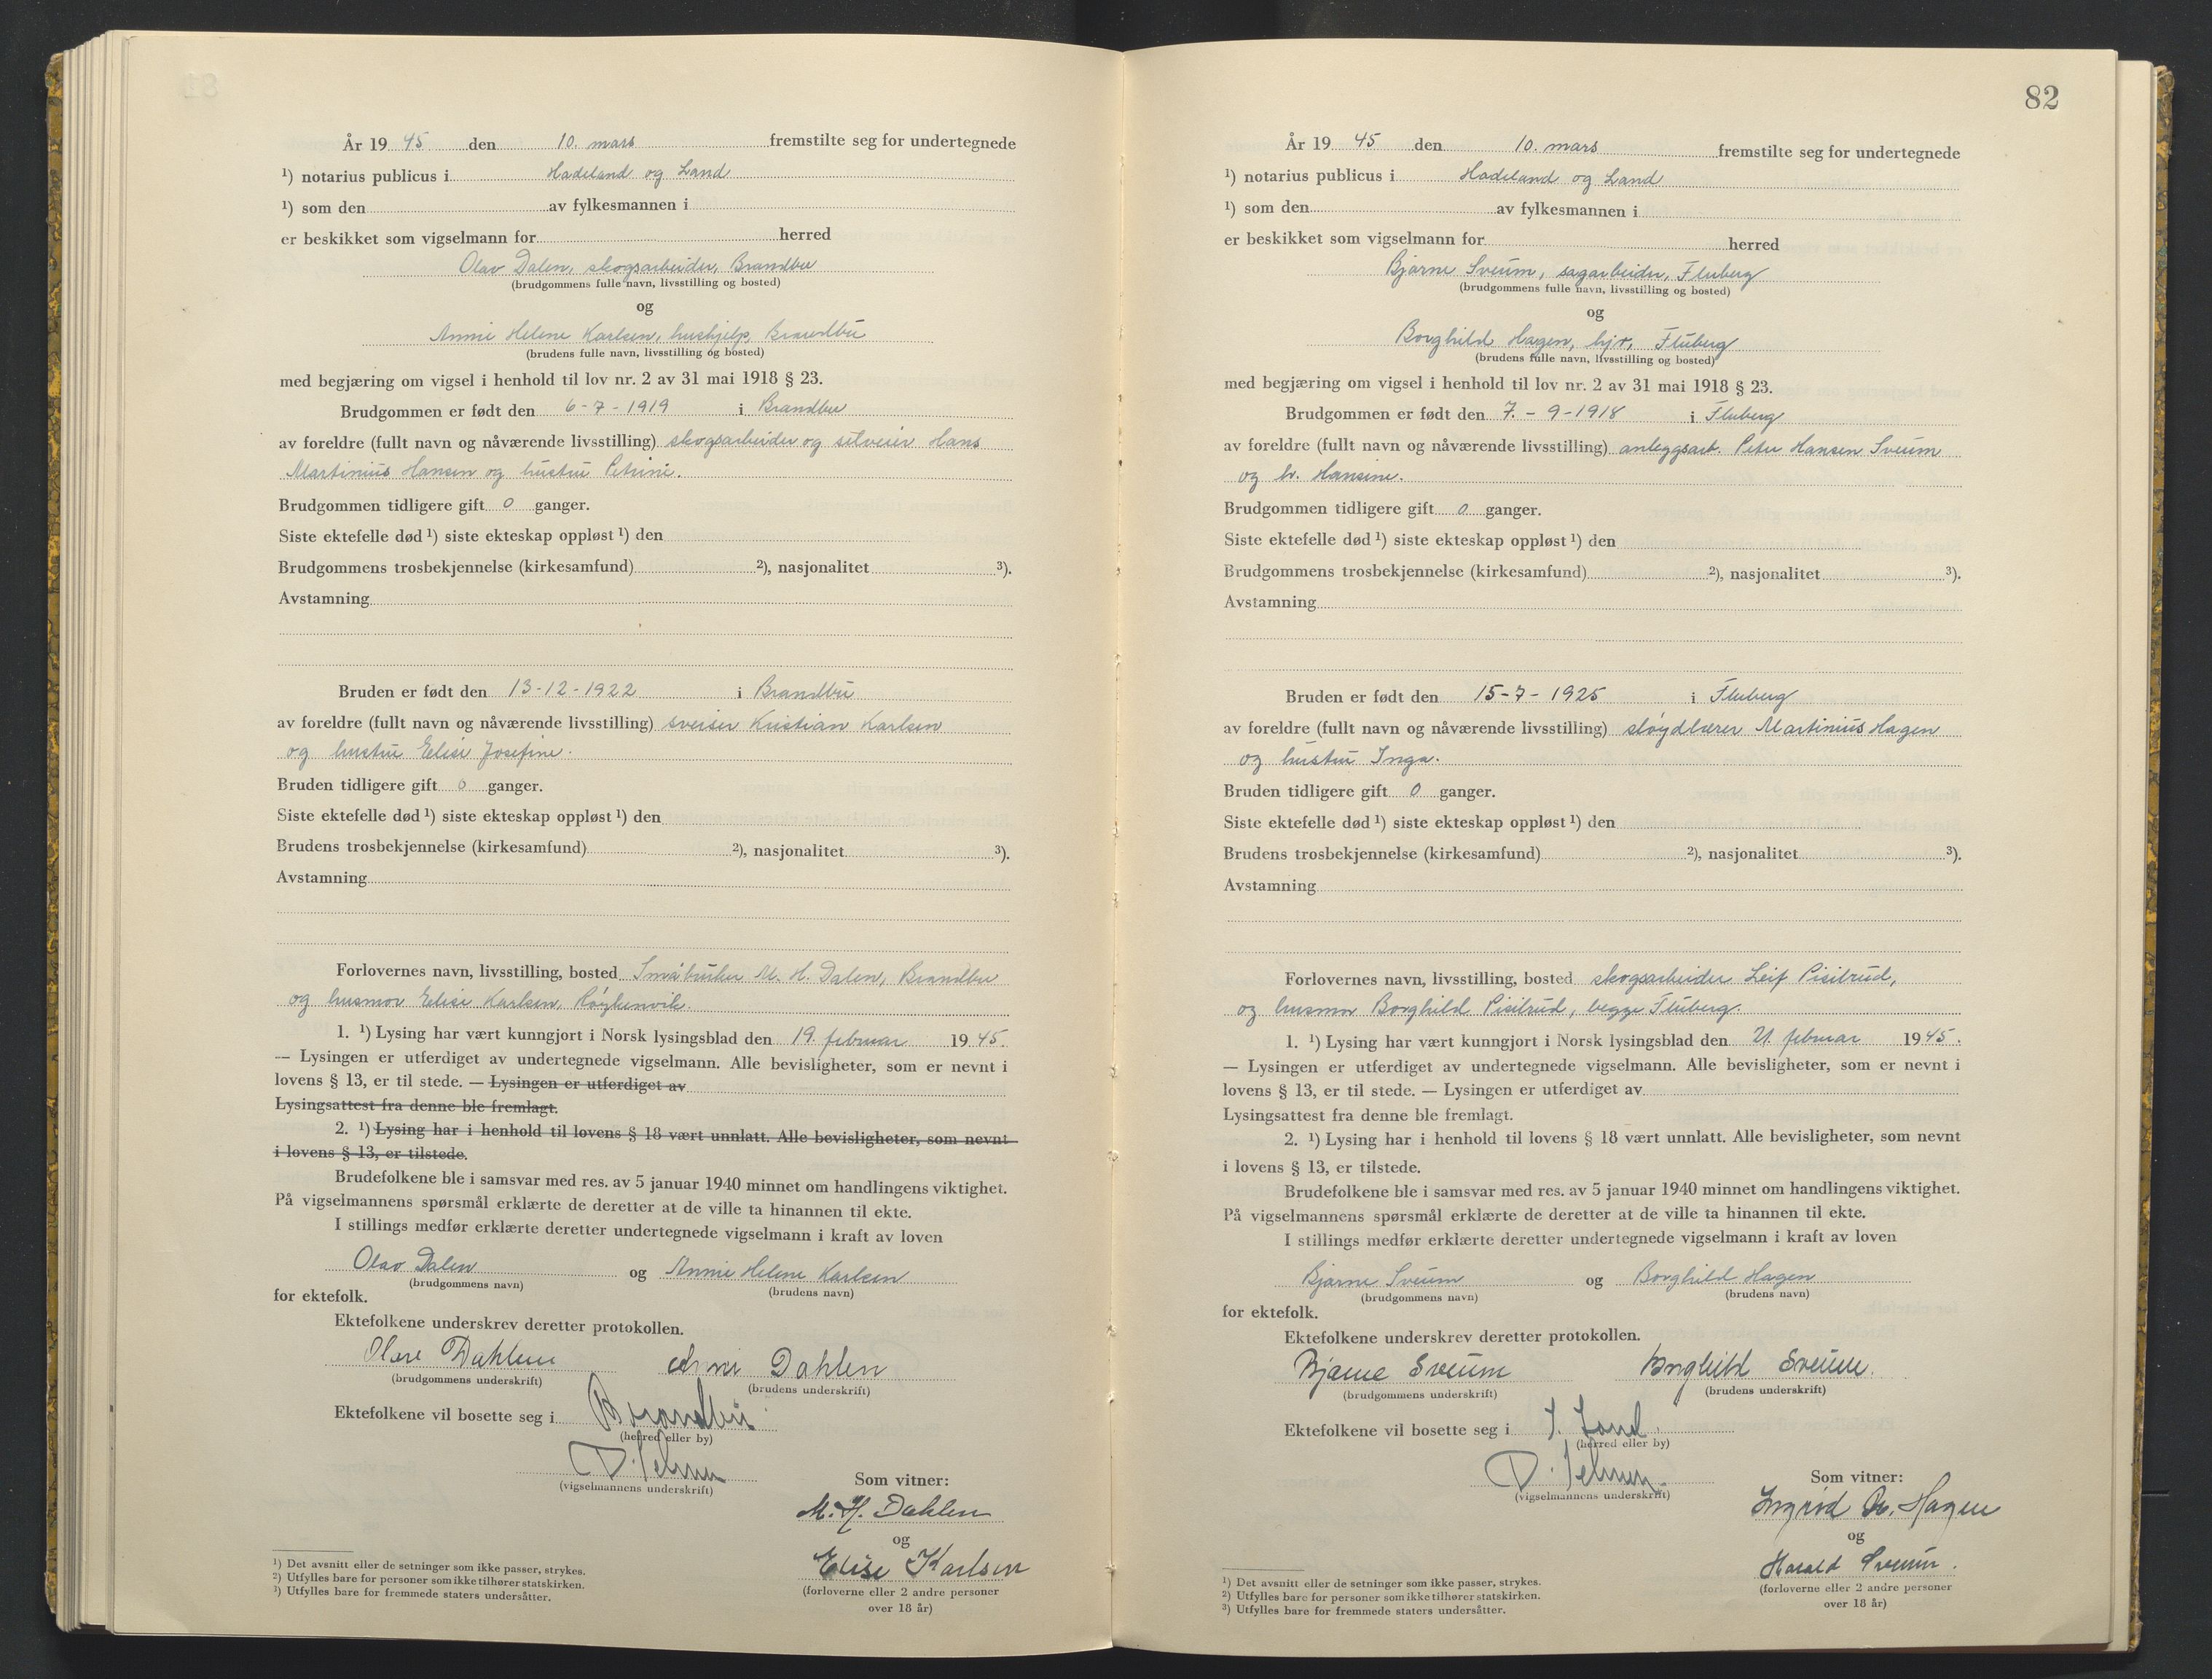 År 19 45 den 10. mars fremstilte seg for undertegnede
¹) notarius publicus i Hadeland og Land
¹) som den av fylkesmannen i
er beskikket som vigselmann for herred
Olav Dalen, skogsarbeider, Brandbu
(brudgommens fulle navn, livsstilling og bosted)
og
Annie Helene Karlsen, hushjelp, Brandbu
(brudens fulle navn, livsstilling og bosted)
med begjæring om vigsel i henhold til lov nr. 2 av 31 mai 1918 § 23.
Brudgommen er født den 6-7-1919 i Brandbu
av foreldre (fullt navn og nåværende livsstilling) skogsarbeider og selveier Hans
Martinius Hansen og hustru Petrine.
Brudgommen tidligere gift 0 ganger.
Siste ektefelle død ¹) siste ekteskap oppløst ¹) den
Brudgommens trosbekjennelse (kirkesamfund) ²), nasjonalitet ³).
Avstamning
Bruden er født den 13-12-1922 i Brandbu
av foreldre (fullt navn og nåværende livsstilling) sveiser Kristian Karlsen
og hustru Elise Josefine.
Bruden tidligere gift 0 ganger.
Siste ektefelle død ¹) siste ekteskap oppløst ¹) den
Brudens trosbekjennelse (kirkesamfund) ²), nasjonalitet ³).
Avstamning
Forlovernes navn, livsstilling, bosted Småbruker M. H. Dalen, Brandbu
og husmor Elise Karlsen, Røykenvik.
1. ¹) Lysing har vært kunngjort i Norsk lysingsblad den 19. februar 1945.
— Lysingen er utferdiget av undertegnede vigselmann. Alle bevisligheter, som er nevnt i
lovens § 13, er til stede. — Lysingen er utferdiget av
Lysingsattest fra denne ble fremlagt.
2. ¹) Lysing har i henhold til lovens § 18 vært unnlatt. Alle bevisligheter, som nevnt
i lovens § 13, er tilstede.
Brudefolkene ble i samsvar med res. av 5 januar 1940 minnet om handlingens viktighet.
På vigselmannens spørsmål erklærte de deretter at de ville ta hinannen til ekte.
I stillings medfør erklærte deretter undertegnede vigselmann i kraft av loven
Olav Dalen og Annie Helene Karlsen
(brudgommens navn) (brudens navn)
for ektefolk.
Ektefolkene underskrev deretter protokollen.
Olav Dahlen Anni Dahlen
(brudgommens underskrift) (brudens underskrift)
Ektefolkene vil bosette seg i Brandbu
(herred eller by)
(vigselmannens underskrift)
Som vitner:
M. H. Dahlen
og
Elise Karlsen
(forloverne eller 2 andre personer
over 18 år)
¹) Det avsnitt eller de setninger som ikke passer, strykes.
²) Utfylles bare for personer som ikke tilhører statskirken.
³) Utfylles bare for fremmede staters undersåtter.
82
År 19 45 den 10. mars fremstilte seg for undertegnede
¹) notarius publicus i Hadeland og Land
¹) som den av fylkesmannen i
er beskikket som vigselmann for herred
Bjarne Sveum, sagarbeider, Fluberg
(brudgommens fulle navn, livsstilling og bosted)
og
Borghild Hagen, hjv, Fluberg
(brudens fulle navn, livsstilling og bosted)
med begjæring om vigsel i henhold til lov nr. 2 av 31 mai 1918 § 23.
Brudgommen er født den 7.-9-1918 i Fluberg
av foreldre (fullt navn og nåværende livsstilling) anleggsarb. Peter Hansen Sveum
og h. Hansine.
Brudgommen tidligere gift 0 ganger.
Siste ektefelle død ¹) siste ekteskap oppløst ¹) den
Brudgommens trosbekjennelse (kirkesamfund) ²), nasjonalitet ³).
Avstamning
Bruden er født den 15-7-1925 i Fluberg
av foreldre (fullt navn og nåværende livsstilling) sløydlærer Martinius Hagen
og hustru Inga.
Bruden tidligere gift 0 ganger.
Siste ektefelle død ¹) siste ekteskap oppløst ¹) den
Brudens trosbekjennelse (kirkesamfund) ²), nasjonalitet ³).
Avstamning
Forlovernes navn, livsstilling, bosted skogsarbeider Leif Pisilrud,
og husmor Borghild Pisilrud, begge Fluberg.
1. ¹) Lysing har vært kunngjort i Norsk lysingsblad den 21. februar 1945.
— Lysingen er utferdiget av undertegnede vigselmann. Alle bevisligheter, som er nevnt i
lovens § 13, er til stede. — Lysingen er utferdiget av
Lysingsattest fra denne ble fremlagt.
2. ¹) Lysing har i henhold til lovens § 18 vært unnlatt. Alle bevisligheter, som nevnt
i lovens § 13, er tilstede.
Brudefolkene ble i samsvar med res. av 5 januar 1940 minnet om handlingens viktighet.
På vigselmannens spørsmål erklærte de deretter at de ville ta hinannen til ekte.
I stillings medfør erklærte deretter undertegnede vigselmann i kraft av loven
Bjarne Sveum og Borghild Hagen
(brudgommens navn) (brudens navn)
for ektefolk.
Ektefolkene underskrev deretter protokollen.
Bjarne Sveum Borghild Sveum.
(brudgommens underskrift) (brudens underskrift)
Ektefolkene vil bosette seg i S. Land.
(herred eller by)
(vigselmannens underskrift)
Som vitner:
Ingrid M. Hagen
og
Harald Sveum.
(forloverne eller 2 andre personer
over 18 år)
¹) Det avsnitt eller de setninger som ikke passer, strykes.
²) Utfylles bare for personer som ikke tilhører statskirken.
³) Utfylles bare for fremmede staters undersåtter.